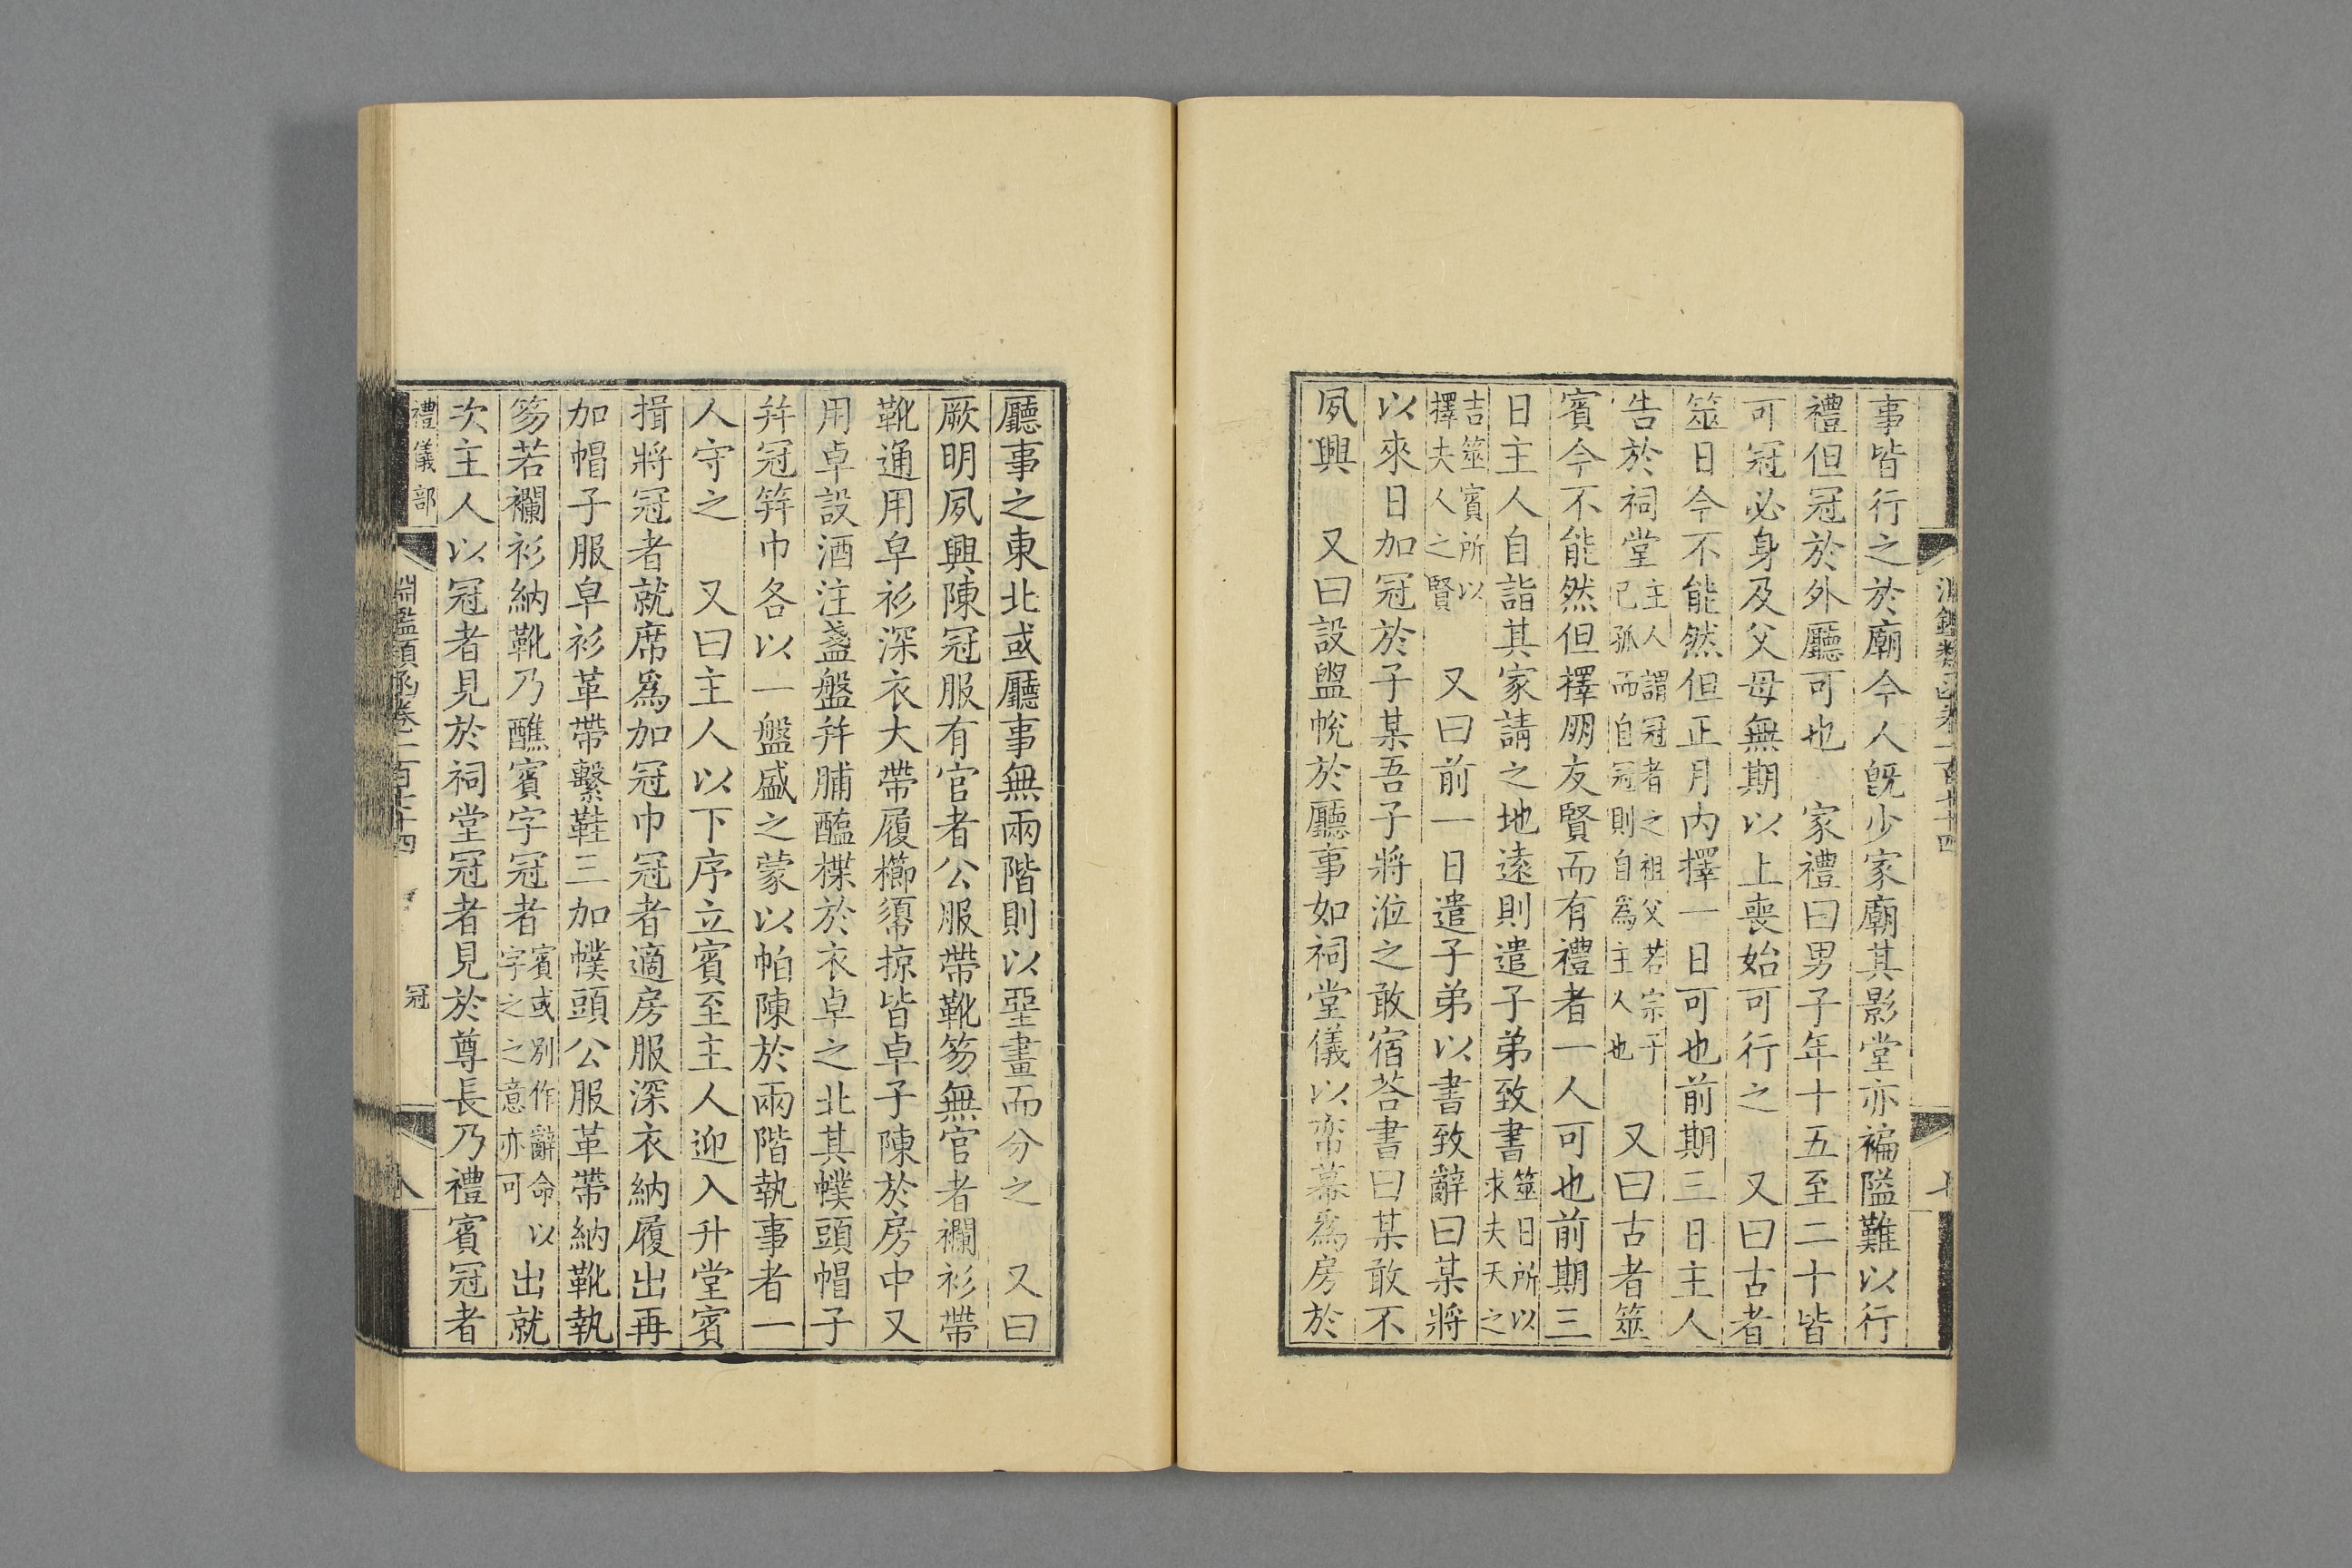 事皆行之於廟今人旣少家廟其影堂亦褊隘難以行
禮但冠於外廳可也 家禮曰男子年十五至二十皆
可冠必身及父母無期以上喪始可行之 又曰古者
筮日今不能然但正月內擇一日可也前期三日主人
告於祠堂主人謂冠者之祖父若宗子已孤而自冠則自爲主人也 又曰古者筮
賓今不能然但擇朋友賢而有禮者一人可也前期三
日主人自詣其家請之地遠則遣子弟致書筮日所以求夫天之
吉筮賓所以擇夫人之賢 又曰前一日遣子弟以書致辭曰某將
以來日加冠於子某吾子將涖之敢宿荅書曰某敢不
夙興 又曰設盥帨於廳事如祠堂儀以帟幕爲房於
廳事之東北或廳事無兩階則以堊畫而分之 又曰
厥明夙興陳冠服有官者公服帶靴笏無官者襴衫帶
靴通用皁衫深衣大帶履櫛𢄼掠皆卓子陳於房中又
用卓設酒注盞盤并脯醢楪於衣卓之北其幞頭帽子
并冠笄巾各以一盤盛之蒙以帕陳於兩階執事者一
人守之 又曰主人以下序立賓至主人迎入升堂賓
揖將冠者就席爲加冠巾冠者適房服深衣納履出再
加帽子服皁衫革帶繫鞋三加幞頭公服革帶納靴執
笏若襴衫納靴乃醮賓字冠者賓或別作辭命以字之之意亦可 出就
次主人以冠者見於祠堂冠者見於尊長乃禮賓冠者
禮儀部 淵鑑類函卷一百七十四 冠 八